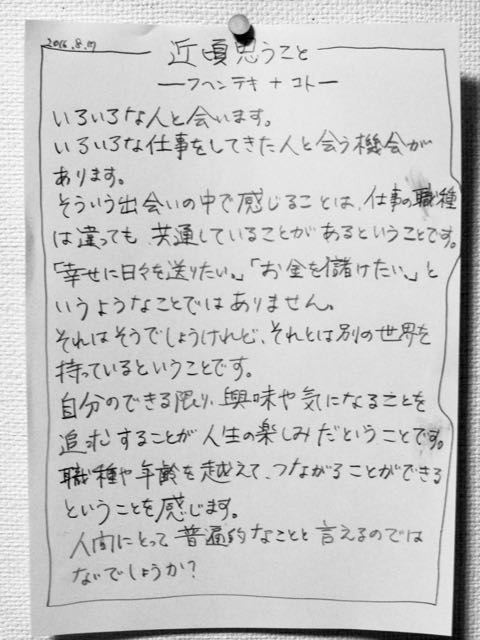 2016.8.17
近頃思うこと
ーフヘンテキ+コトー
いろいろな人と会います。
いろいろな仕事をしてきた人と会う機会が
あります。
そういう出会いの中で感じることは、仕事の職種
は違っても、共通していることがあるということです。
「幸せに日々を送りたい。」「お金を儲けたい。」と
いうようなことではありません。
それはそうでしょうけれど、それとは別の世界を
持っているということです。
自分のできる限り、興味や気になることを
追求することが人生の楽しみだということです。
職種や年齢を越えて、つながることができる
ということを感じます。
人間にとって普遍的なことと言えるのでは
ないでしょうか?